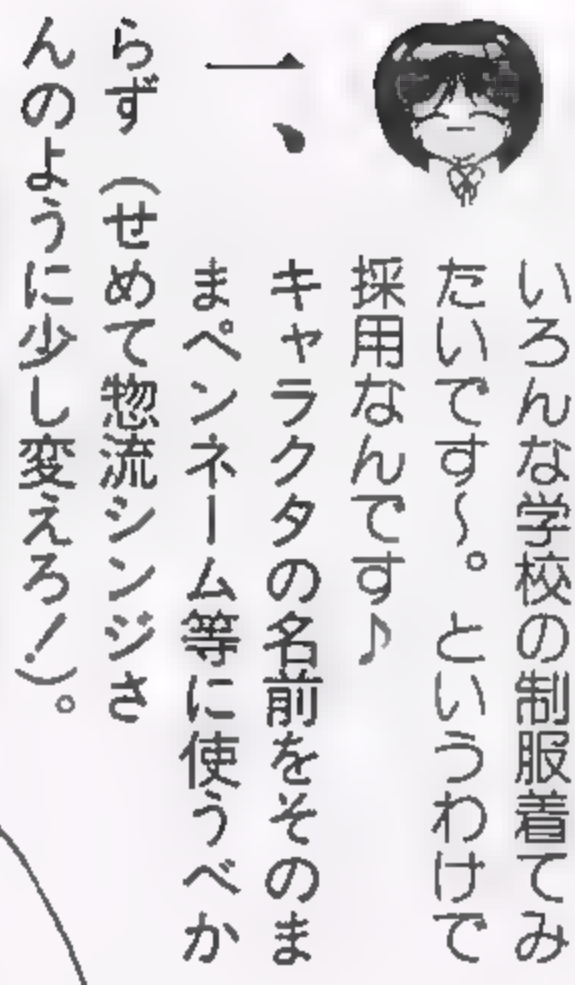 いろんな学校の制服着てみ
たいです～。というわけで
採用なんです♪
一、
キャラクタの名前をそのま
まペンネーム等に使うべか
らず（せめて惣流シンジさ
んのように少し変えろ！）。